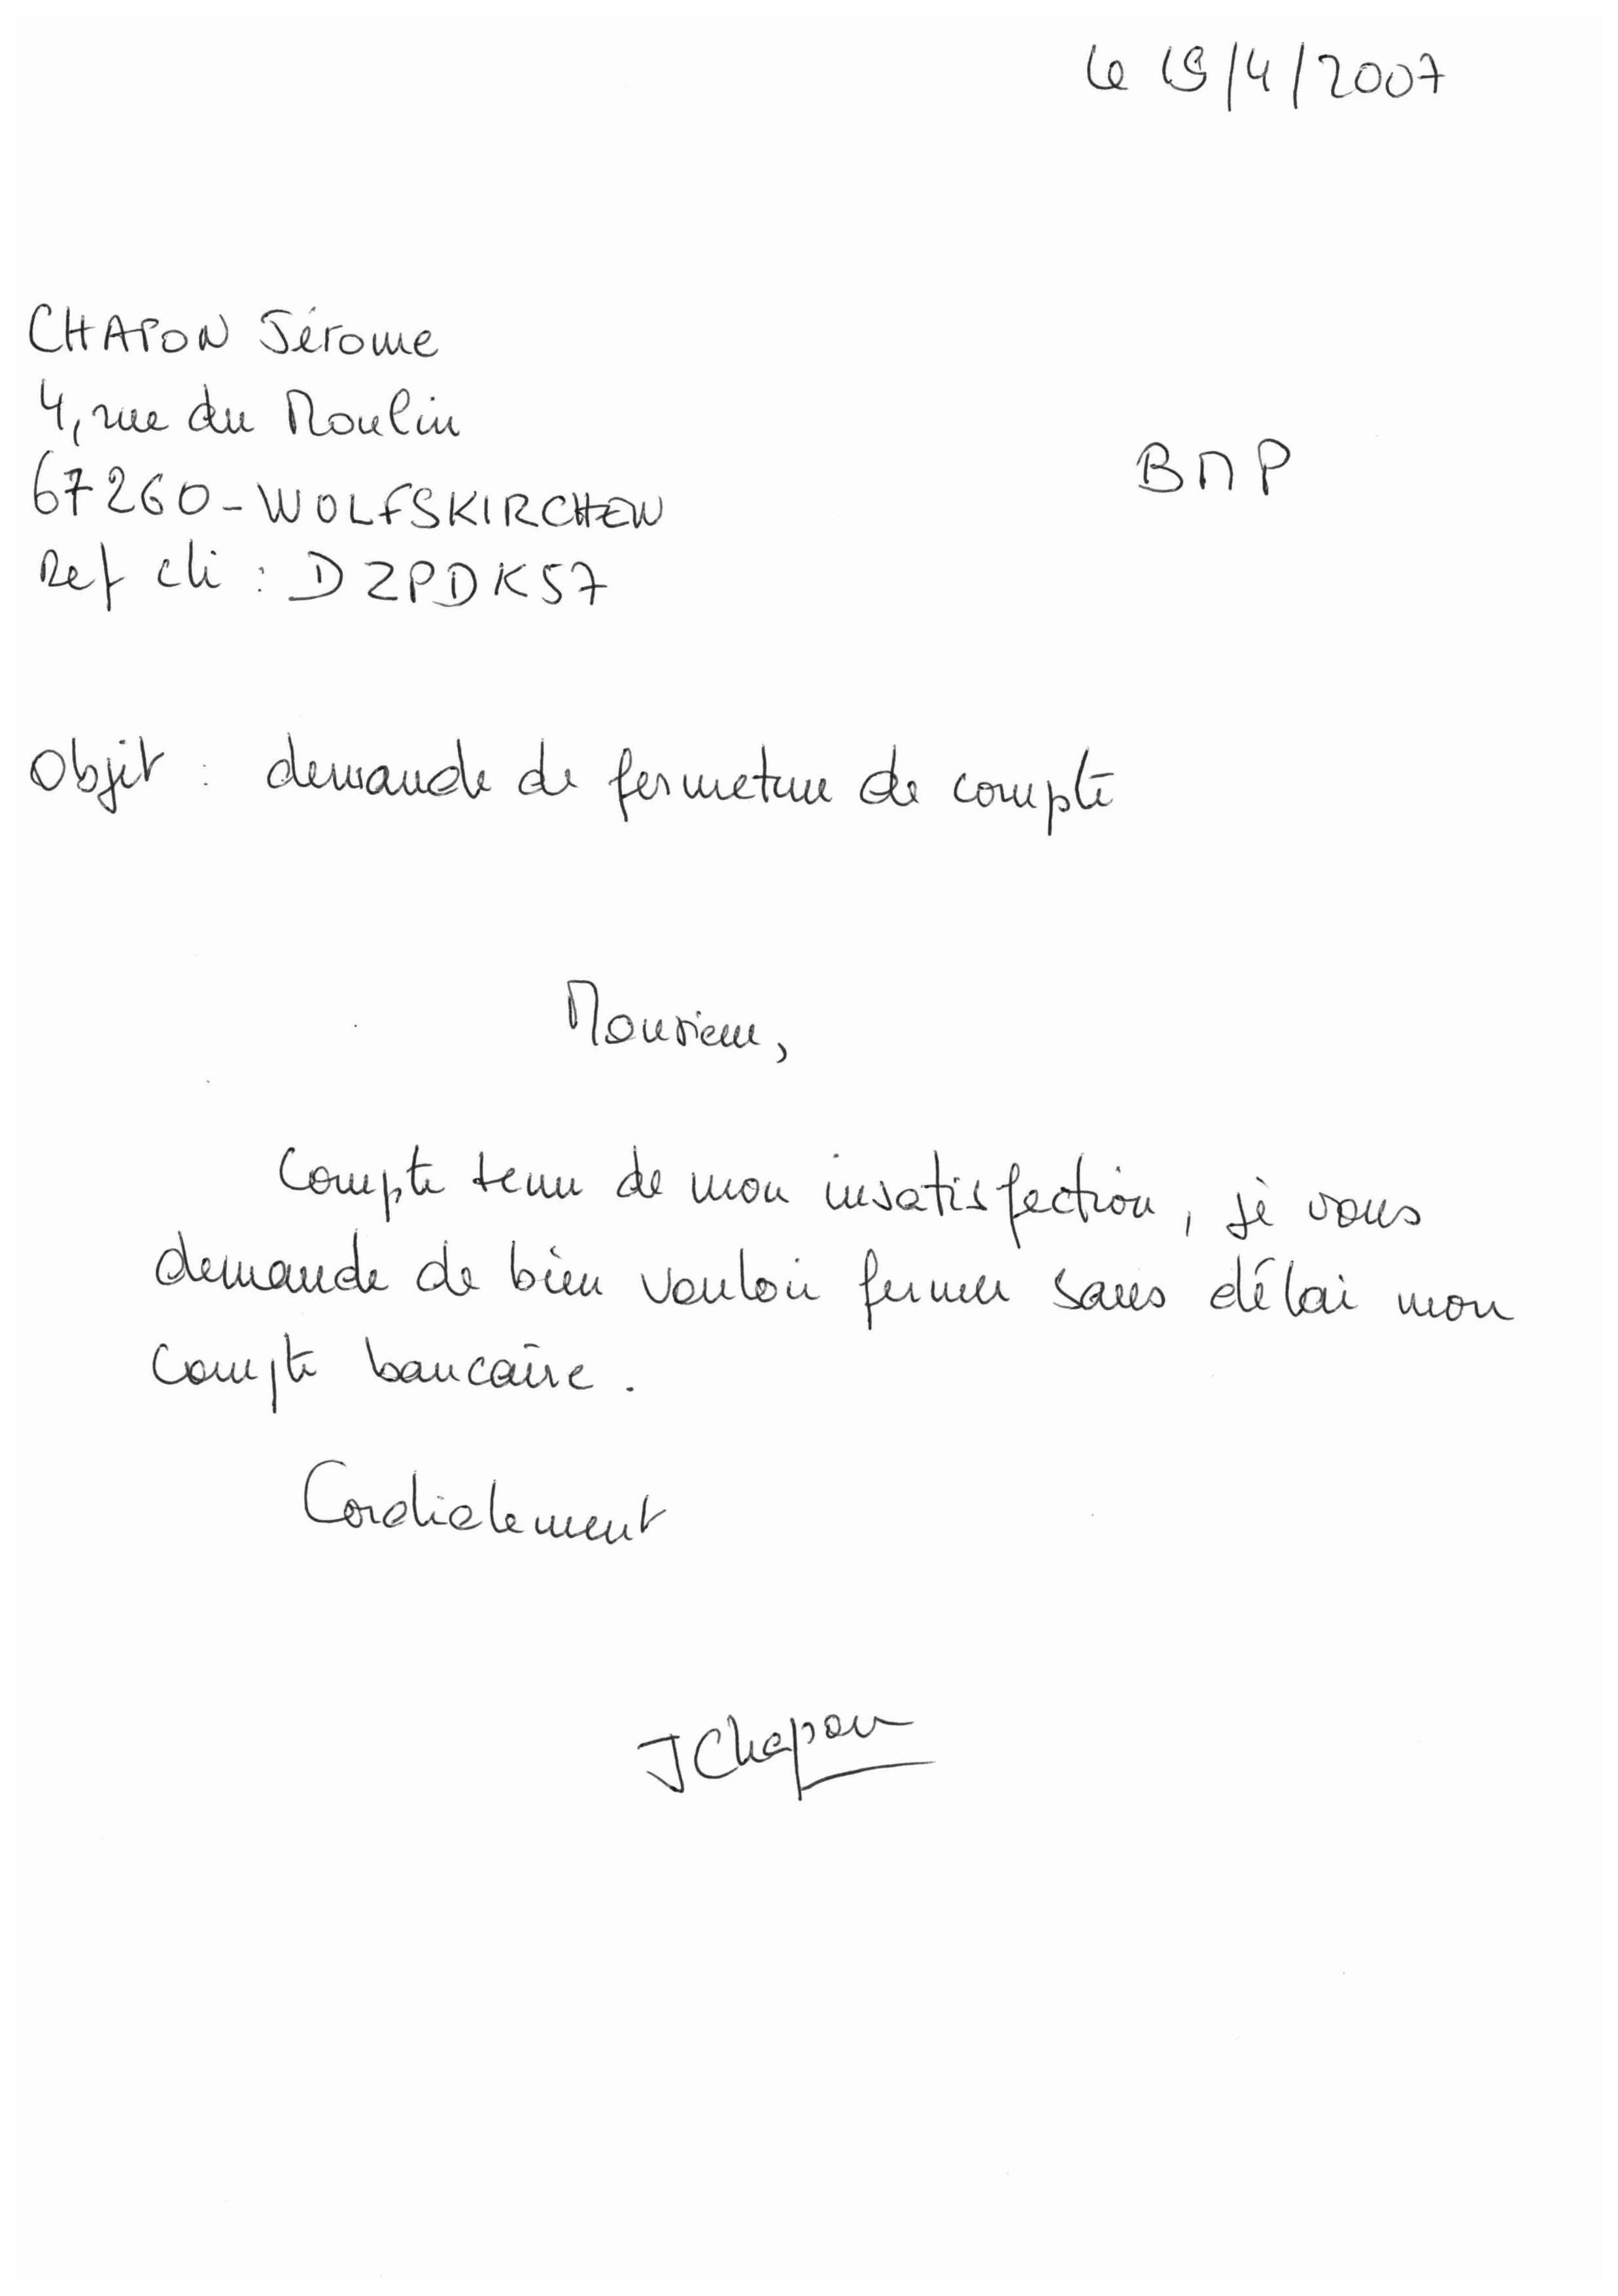 le 19/4/2007
CHAPON Jérome
4, rue du Moulin
67260-WOLFSKIRCHEN
BNP
Ref cli : DZPDK57
Objet : demande de fermeture de compte
Monsieur,
Compte tenu de mon insatisfaction, je vous
demande de bien vouloir fermer sans délai mon
compte bancaire.
Cordialement
JChapon